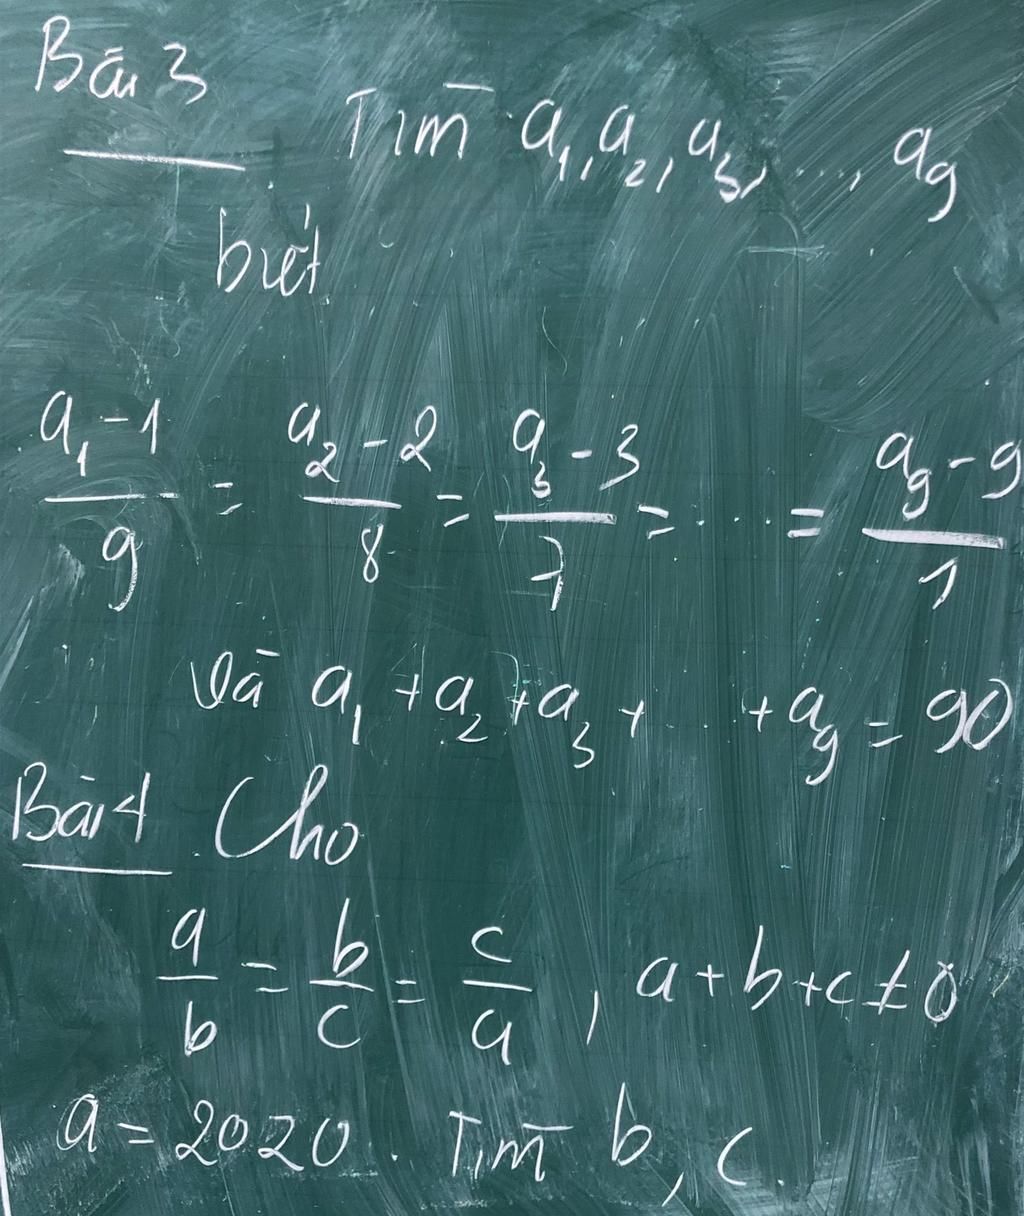 Bài 3 Tìm a₁, a₂, a₃, ..., a₉
biết
(a₁ - 1)/9 = (a₂ - 2)/8 = (a₃ - 3)/7 = ... = (a₉ - 9)/1
và a₁ + a₂ + a₃ + ... + a₉ = 90
Bài 4 Cho
a/b = b/c = c/a , a + b + c ≠ 0
a = 2020. Tìm b, c.